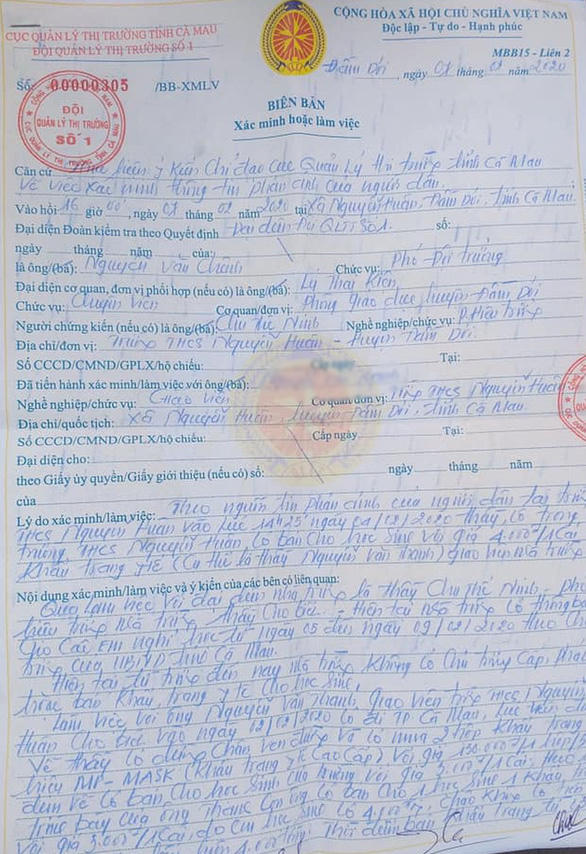 CỤC QUẢN LÝ THỊ TRƯỜNG TỈNH CÀ MAU
ĐỘI QUẢN LÝ THỊ TRƯỜNG SỐ 1
CỘNG HÒA XÃ HỘI CHỦ NGHĨA VIỆT NAM
Độc lập - Tự do - Hạnh phúc
MBB15 - Liên 2
Số: 00000305 /BB-XMLV
Đầm Dơi, ngày 07 tháng 02 năm 2020
ĐỘI
QUẢN LÝ THỊ TRƯỜNG
SỐ 1
BIÊN BẢN
Xác minh hoặc làm việc
Căn cứ Thực hiện ý kiến chỉ đạo Cục Quản Lý thị trường tỉnh Cà Mau
Về việc xác minh thông tin phản ánh của người dân.
Vào hồi 16 giờ 00, ngày 07 tháng 02 năm 2020 tại Xã Nguyễn Huân, Đầm Dơi, tỉnh Cà Mau.
Đại diện Đoàn kiểm tra theo Quyết định Đại diện Đội QLTT số 1. số:
ngày tháng năm của:
là ông/(bà): Nguyễn Văn Chánh Chức vụ: Phó Đội trưởng
Đại diện cơ quan, đơn vị phối hợp (nếu có) là ông/(bà): Lý Thái Kiên
Chức vụ: Chuyên viên Cơ quan/đơn vị: Phòng giáo dục huyện Đầm Dơi
Người chứng kiến (nếu có) là ông/(bà): Chu Thế Ninh Nghề nghiệp/chức vụ: P. Hiệu trưởng
Địa chỉ/đơn vị: Trường THCS Nguyễn Huân - Huyện Đầm Dơi.
Số CCCD/CMND/GPLX/hộ chiếu: Tại:
Đã tiến hành xác minh/làm việc với ông/(bà):
Nghề nghiệp/chức vụ: Giáo viên Cơ quan/đơn vị: Trường THCS Nguyễn Huân
Địa chỉ/quốc tịch: Xã Nguyễn Huân, huyện Đầm Dơi, tỉnh Cà Mau.
Số CCCD/CMND/GPLX/hộ chiếu: Cấp ngày Tại:
Đại diện cho:
theo Giấy ủy quyền/Giấy giới thiệu (nếu có) số: ngày tháng năm
của
Lý do xác minh/làm việc: Theo nguồn tin phản ánh của người dân tại trường
THCS Nguyễn Huân vào lúc ngày /02/2020 thấy có trong
trường THCS Nguyễn Huân có bán cho học sinh với giá 4.000đ/1 cái
khẩu trang y tế (cụ thể là thầy Nguyễn Văn Thành) giáo viên nhà trường
Nội dung xác minh/làm việc và ý kiến của các bên có liên quan:
Qua làm việc với đại diện nhà trường là thầy Chu Thế Ninh, phó
hiệu trưởng nhà trường thầy cho biết - Hiện tại nhà trường có thông báo
cho các em nghỉ học từ ngày 03 đến ngày 09/02/2020 theo chủ
trương của UBND tỉnh Cà Mau.
Hiện tại từ trước đến nay nhà trường không có chủ trương cấp, phát
hoặc bán khẩu trang y tế cho học sinh.
Làm việc với ông Nguyễn Văn Thành, giáo viên trường THCS Nguyễn
Huân cho biết vào ngày 02/02/2020 có đi TP Cà Mau, lúc trên đường
Về thầy có dừng chân ven đường và có mua 2 tiếp khẩu trang
hiệu MF-MASK (khẩu trang y tế cao cấp) với giá 150.000đ/1
đem về có bán cho học sinh của trường với giá 3.000đ/1 cái, theo
trình bày của ông Thành còn có bán cho 1 học sinh 1 khẩu
với giá 3.000đ/1 cái, do em học sinh có 4.000đ,